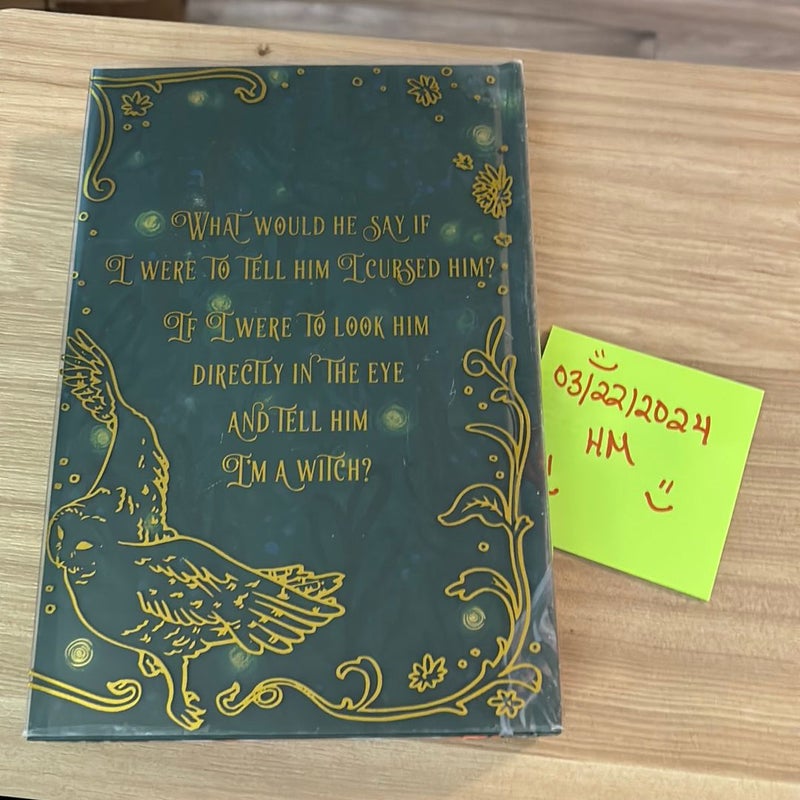 What would he say if
I were to tell him I cursed him?
If I were to look him
directly in the eye
and tell him
I'm a witch?
03/22/2024
HM